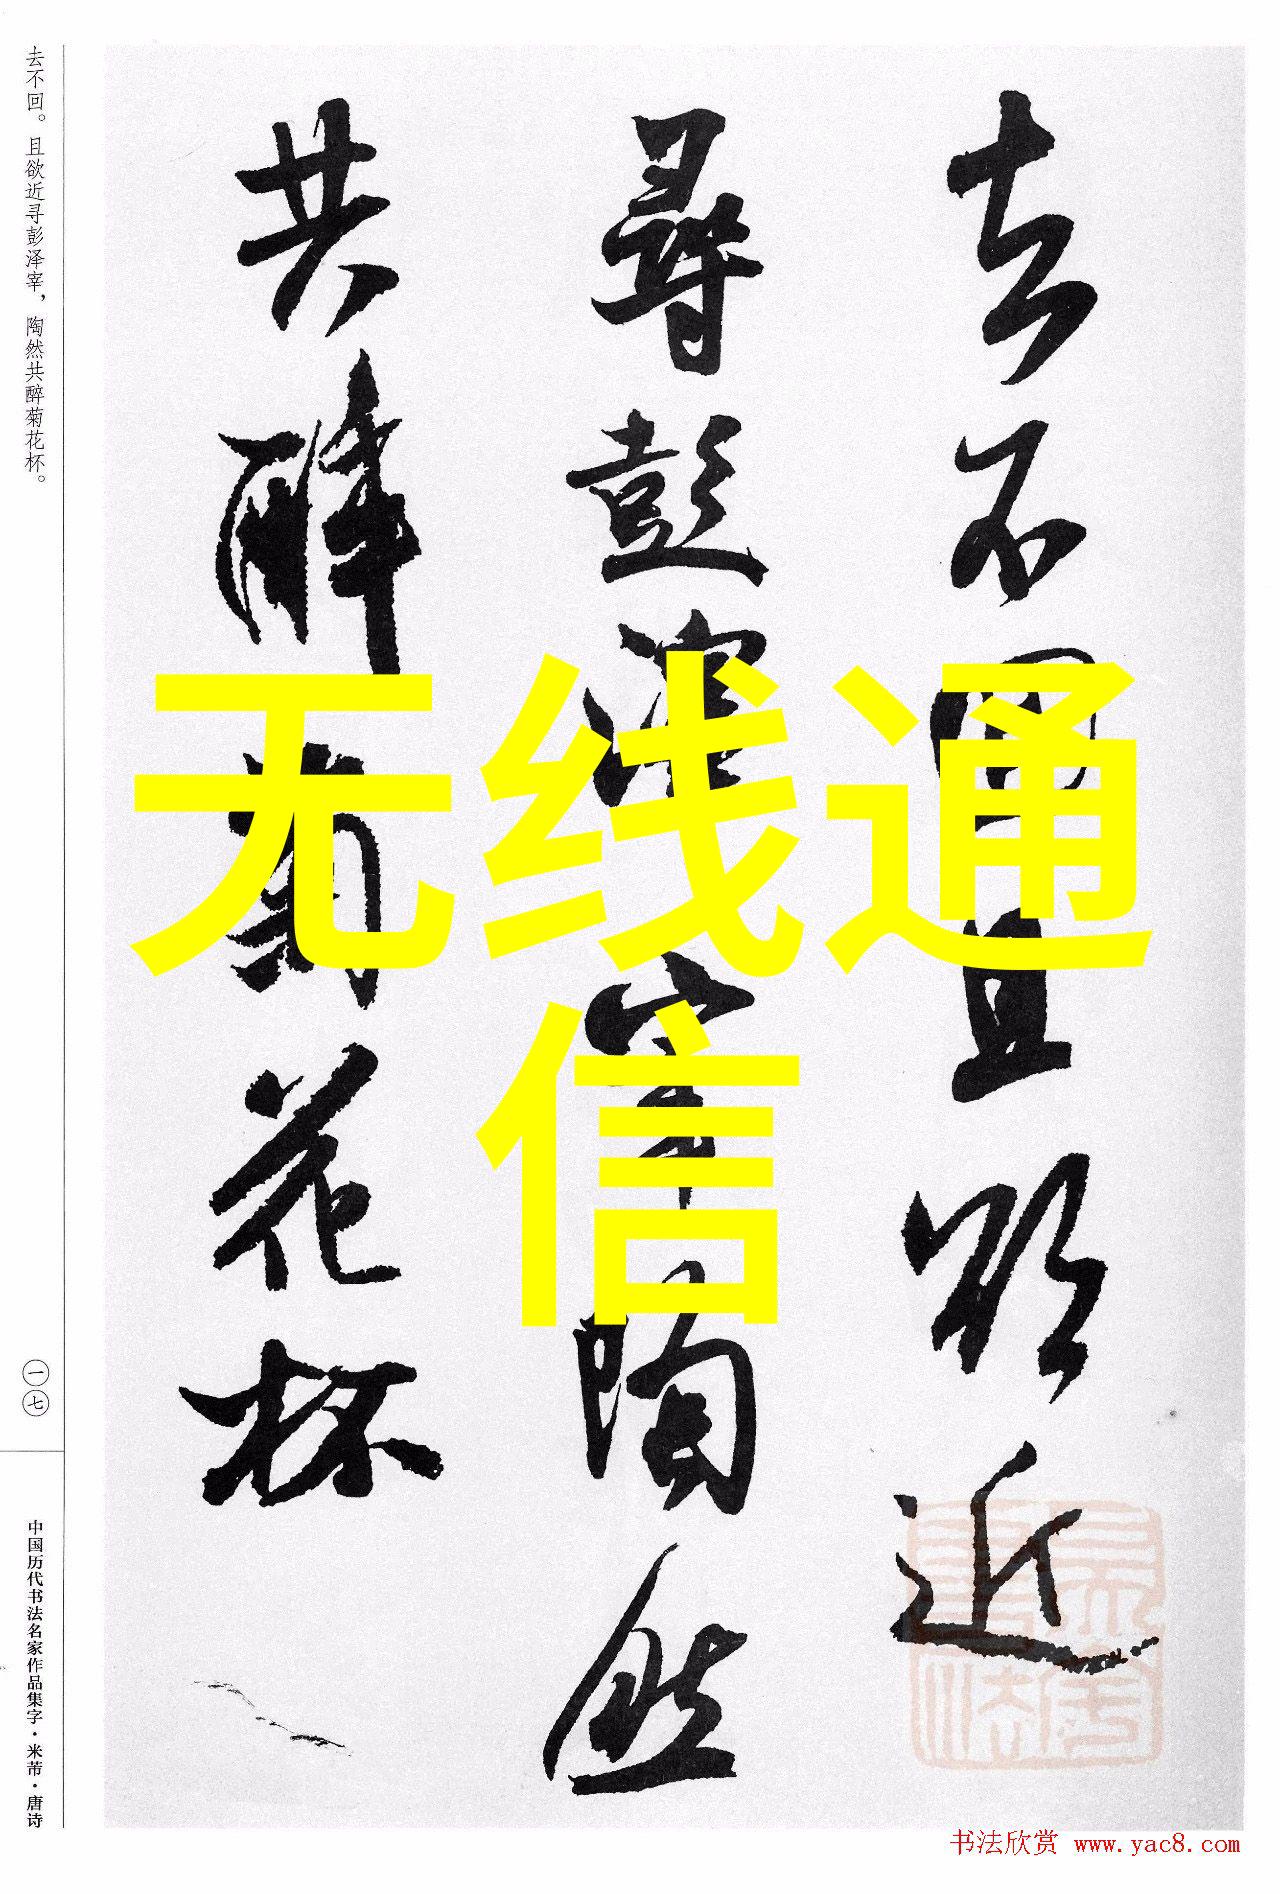 去不回且欲近
寻彭泽宰陶然
共醉菊花杯
无线通
信
去不回。且欲近寻彭泽宰，陶然共醉菊花杯。
一七
中国历代书法名家作品集字·米芾·唐诗
书法欣赏 www.yac8.com